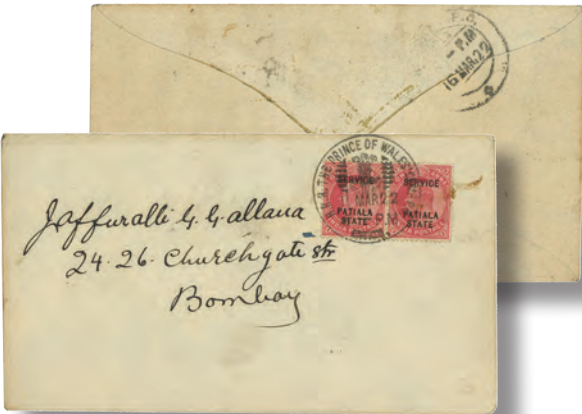 P.O.
P.M
16 MAR.22
H.R.H. THE PRINCE OF WALES'
MAR 22
P.M
SERVICE
PATIALA
STATE
SERVICE
PATIALA
STATE
Jaffuralli G. Gallana
24.26. Churchgate str
Bombay